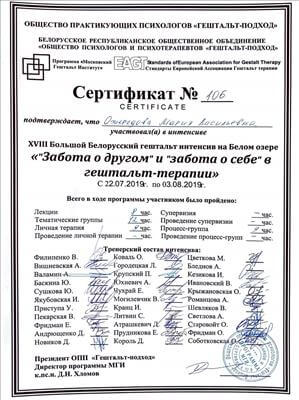 ОБЩЕСТВО ПРАКТИКУЮЩИХ ПСИХОЛОГОВ «ГЕШТАЛЬТ-ПОДХОД»
БЕЛОРУССКОЕ РЕСПУБЛИКАНСКОЕ ОБЩЕСТВЕННОЕ ОБЪЕДИНЕНИЕ
«ОБЩЕСТВО ПСИХОЛОГОВ И ПСИХОТЕРАПЕВТОВ «ГЕШТАЛЬТ-ПОДХОД»
Программа «Московский Гештальт Институт»
EAGT Standards of European Association for Gestalt Therapy
Стандарты Европейской Ассоциации Гештальт терапии
Сертификат № 106
CERTIFICATE
подтверждает, что Мария
участвовал(а) в интенсиве
XVIII Большой Белорусский гештальт интенсив на Белом озере
«"Забота о другом" и "забота о себе" в
гештальт-терапии»
С 22.07.2019г. по 03.08.2019г.
Всего в ходе программы участником было пройдено:
Лекции час. Супервизия – час.
Тематические группы час. Проведение супервизии – час.
Личная терапия час. Процесс-группа час.
Проведение личной терапии - час. Проведение процесс-групп - час.
Тренерский состав интенсива:
Филипенко В. Коваль О. Цветкова М.
Вишневская А. Городецкая Л. Бледнов А.
Валамин А. Крупский П. Кезиков А.
Баскина Ю. Юхневич А. Ивановский В.
Сушкова О. Чухрай Е. Крыжановская О.
Якубовская И. Могилевчик В. Романцова А.
Приступа У. Кранц И. Шевляков В.
Пекарская В. Литвин С. Светлова А.
Фридман Е. Атрашкевич Д. Старовойт О.
Андрющенко Д. Прудникова Е. Фридман О.
Новиков Д. Король О. Соботковская О.
Президент ОПП «Гештальт-подход»
Директор программы МГИ
к.пс.н. Д.Н. Хломов